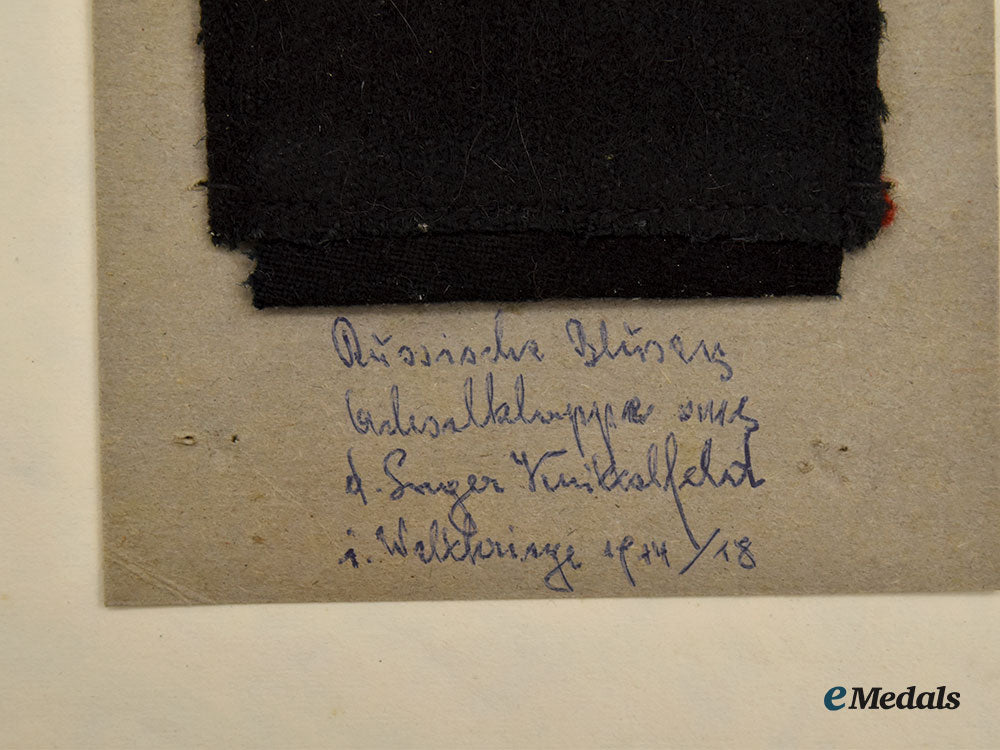 Russische Blusen
Achselklappe aus
d. Lager Knittelfeld
i. Weltkriege 1914/18
eMedals